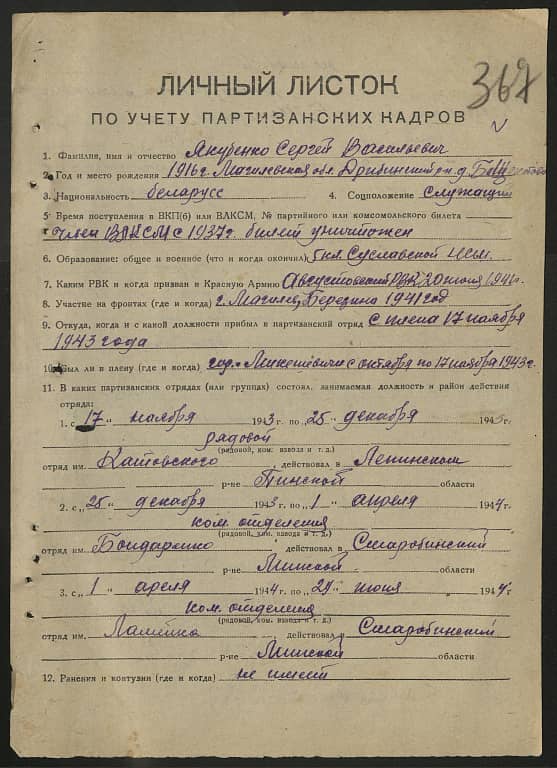 367
ЛИЧНЫЙ ЛИСТОК
ПО УЧЕТУ ПАРТИЗАНСКИХ КАДРОВ
1. Фамилия, имя и отчество Якубенко Сергей Васильевич
2. Год и место рождения 1916г. Могилевская обл. Дрибинский р-н д.
3. Национальность беларусс 4. Соцположение Служащий
5. Время поступления в ВКП(б) или ВЛКСМ, № партийного или комсомольского билета
член ВЛКСМ с 1937г. билет уничтожен
6. Образование: общее и военное (что и когда окончил) 5кл.
7. Каким РВК и когда призван в Красную Армию РВК 20 июня 1941г.
8. Участие на фронтах (где и когда) г. Могилев, Березина 1941 год
9. Откуда, когда и с какой должности прибыл в партизанский отряд с плена 17 ноября
1943 года
10. Был ли в плену (где и когда) гор. Микешевичи с октября по 17 ноября 1943г.
11. В каких партизанских отрядах (или группах) состоял, занимаемая должность и район действия
отряда:
1. с „17 " ноября 1943 г. по „25 " декабря 1943 г.
рядовой
(рядовой, ком. взвода и т. д.)
отряд им. Катовского, действовал в Ленинском
р-не Пинской области
2. с „25 " декабря 1943 г. по „1 " апреля 1944 г.
ком. отделения
(рядовой, ком. взвода и т. д.)
отряд им. Бондаренко действовал в Старобинский
р-не Минской области
3. с „1 " апреля 1944 г. по „24 " июня 1944 г.
ком. отделения
(рядовой, ком. взвода и т. д.)
отряд им. действовал в Старобинский
р-не Минской области
12. Ранения и контузии (где и когда) не имеет